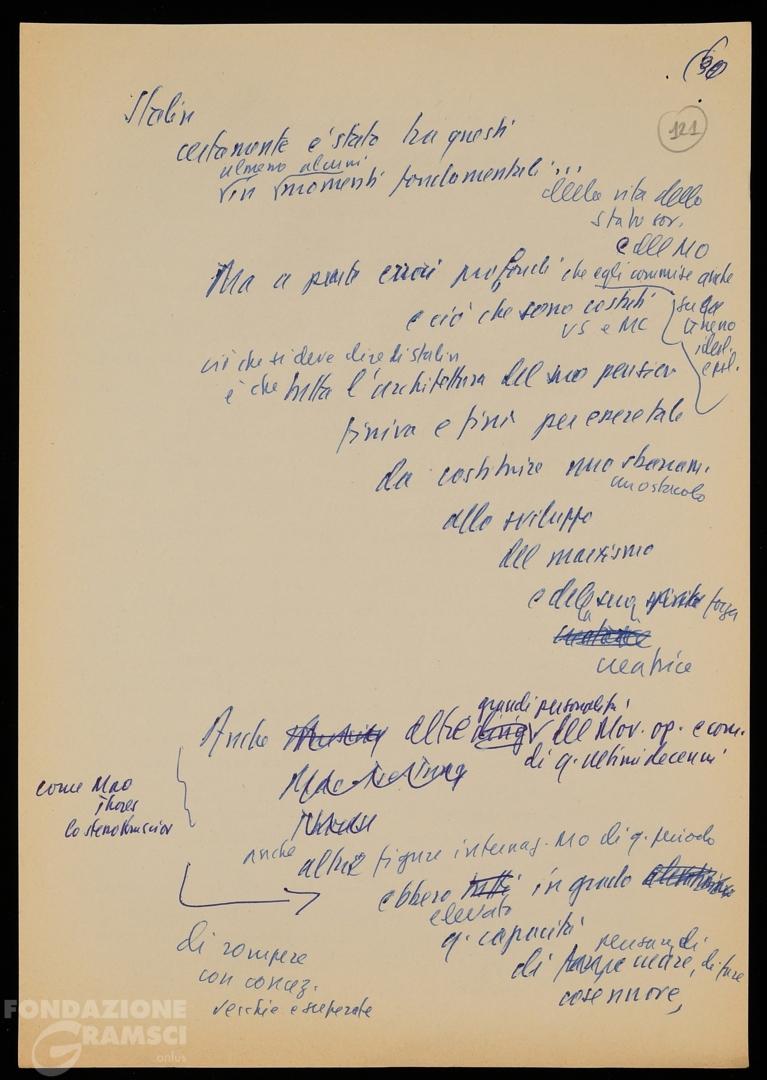 121
Stalin
certamente è stato tra questi
almeno alcuni
in momenti fondamentali...
della vita dello
stato sov.
e del MO
Ma a parte errori profondi che egli commise anche
e ciò che sono costati
VS e MC
ideol.
e pol.
ciò che si deve dire di Stalin
è che tutta l'architettura del suo pensier
finiva e finì per essere tale
da costituire uno sbarram.
un ostacolo
allo sviluppo
del marxismo
e della sua forza
creatrice
grandi personalità
Anche altre del Mov. op. e com.
di q. ultimi decenni
Mao
come Mao
Thorez
lo stesso Krusciov
anche
altre figure internaz. MO di q. periodo
ebbero tutti in grado
elevato
q. capacità
pensare, di
di creare, di fare
cose nuove,
di rompere
con concez.
vecchie e superate
FONDAZIONE
GRAMSCI
.onlus